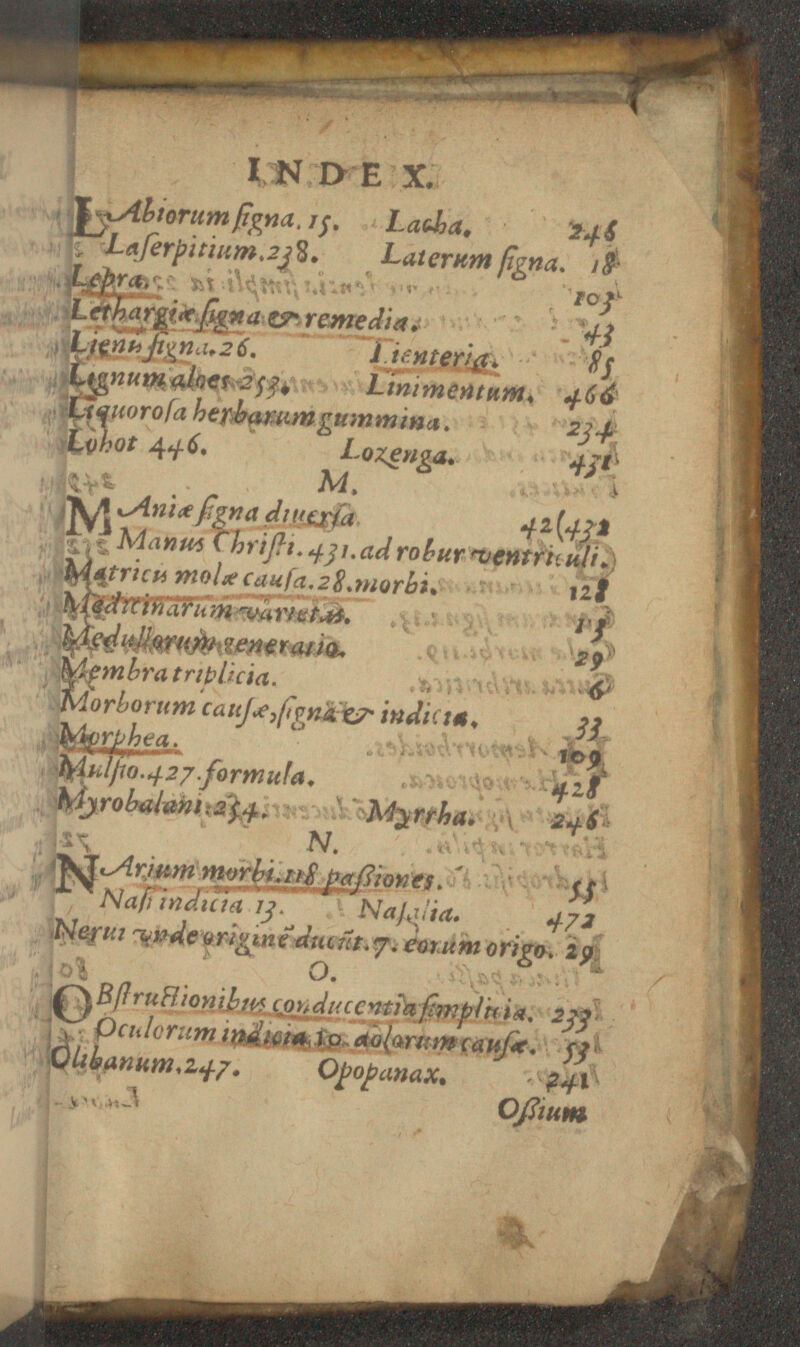 INDEX.
LAbiorum ſigna. 15. Lacha, 246
Laſerpitium. 238. Laterum ſigna. 18
Lepra 103
Lethargiæ ſigna & remedia 43
Lienis ſigna. 26. Lienteria. 85
Lignum aloes 252. Linimentum, 466
Liquoroſa herbarum gummina. 234
Lohot 446. Lozenga. 431
M.
MAniæ ſigna diuerſa. 42(432
Manus Chriſti. 431. ad robur ventriculi.)
Matricis molæ cauſa. 28. morbi. 128
Medicinarum varietas.
Medullarum generatio. 29
Membra triplicia. 6
Morborum cauſæ, ſigna & indicia, 33
Morphea. 109
Mulſio. 427. formula. 428
Myrobalani. 234. Myrrha. 246
N.
NArium morbi. paſſiones. 55
Naſi indicia 13. Naſalia. 472
Nerui vnde originē ducūt. 7. eorum origo. 29
O.
OBſtructionibus conducentia ſimplicia. 239
Oculorum indicia 10. dolorum cauſæ. 53
Olibanum. 247. Opopanax. 241
Oſſium